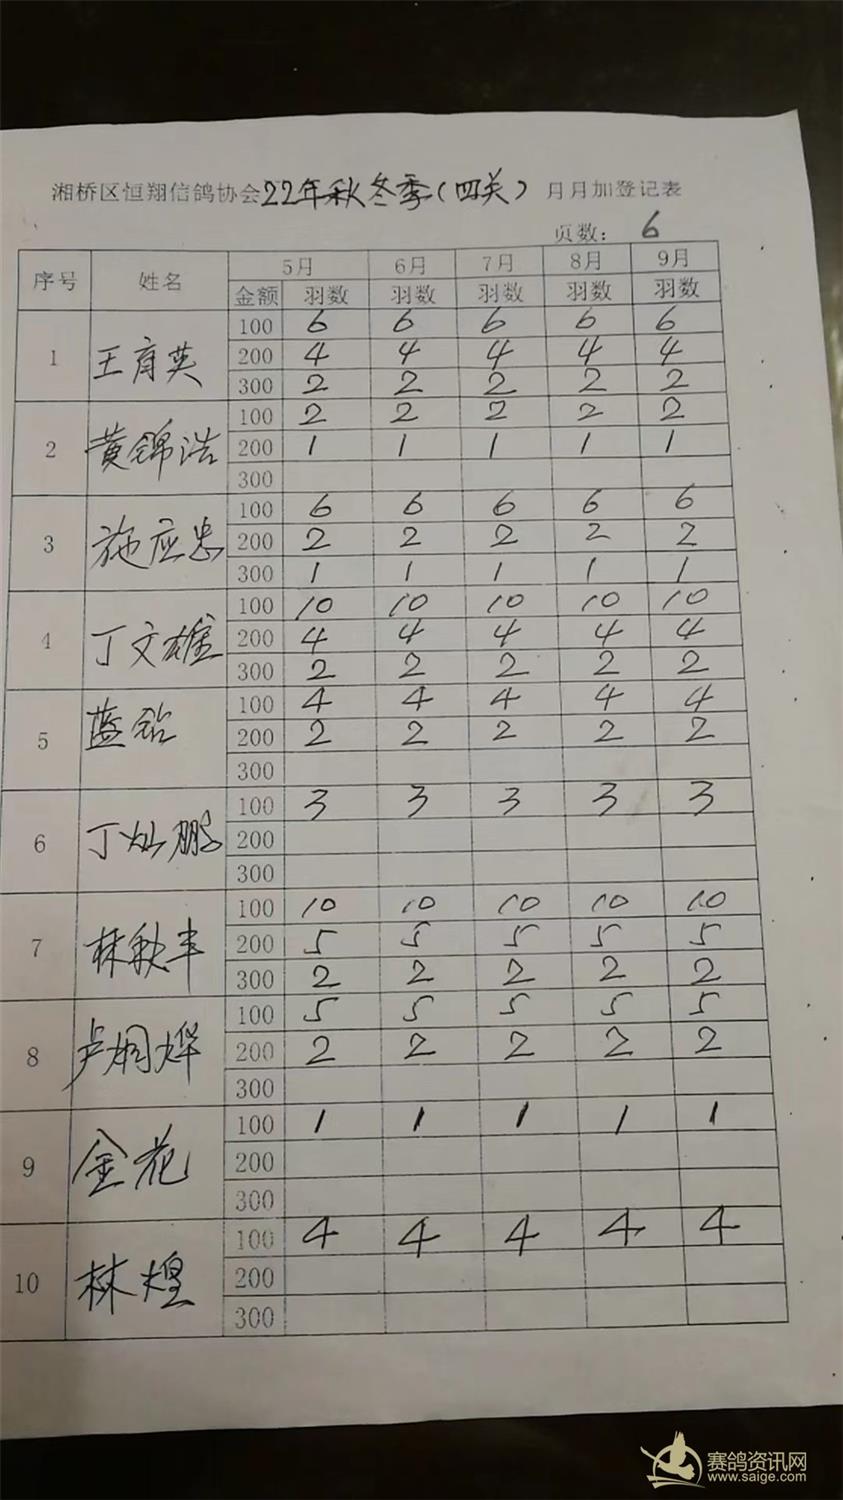 湘桥区恒翔信鸽协会22年秋冬季(四关) 月月加登记表
页数: 6
序号 姓名 5月 6月 7月 8月 9月
金额 羽数 羽数 羽数 羽数 羽数
100 6 6 6 6 6
1 王育英 200 4 4 4 4 4
300 2 2 2 2 2
100 2 2 2 2 2
2 黄锦浩 200 1 1 1 1 1
300
100 6 6 6 6 6
3 施应忠 200 2 2 2 2 2
300 1 1 1 1 1
100 10 10 10 10 10
4 丁文雄 200 4 4 4 4 4
300 2 2 2 2 2
100 4 4 4 4 4
5 蓝钻 200 2 2 2 2 2
300
100 3 3 3 3 3
6 丁灿鹏 200
300
100 10 10 10 10 10
7 林秋丰 200 5 5 5 5 5
300 2 2 2 2 2
100 5 5 5 5 5
8 卢烔烨 200 2 2 2 2 2
300
100 1 1 1 1 1
9 金花 200
300
100 4 4 4 4 4
10 林煌 200
300
赛鸽资讯网
www.saige.com